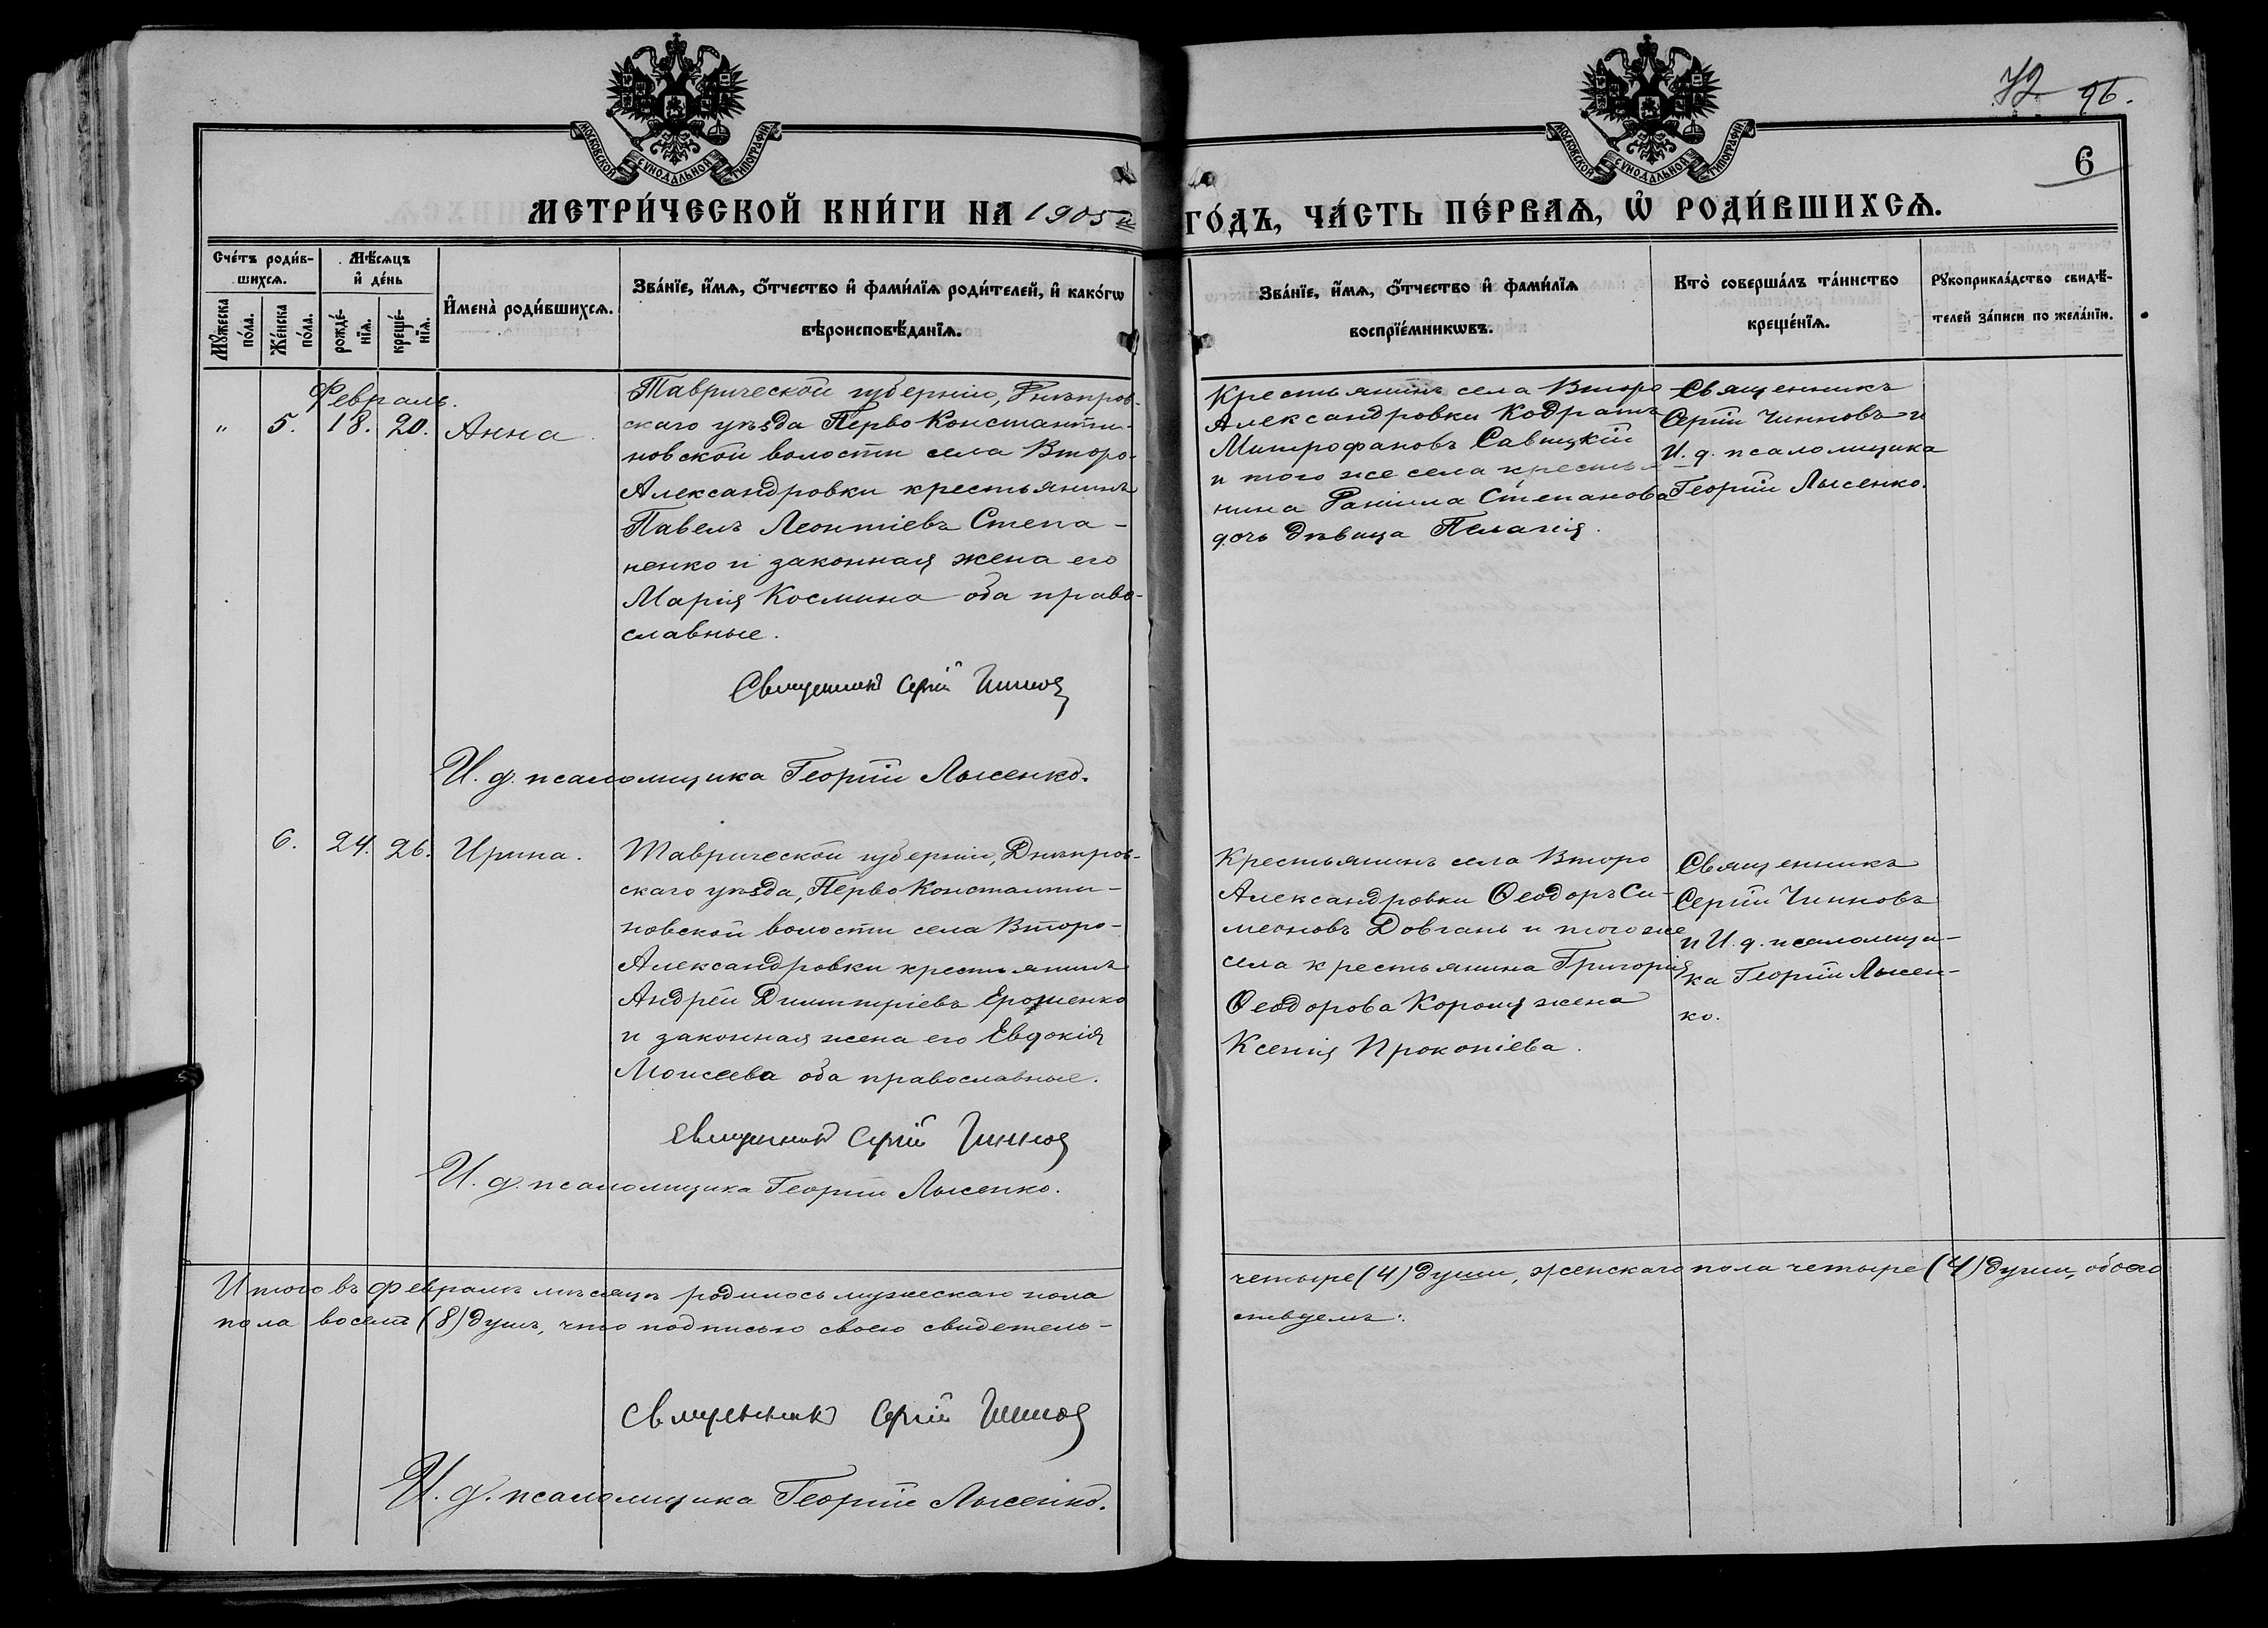 72 96.
МОСКОВСКОЙ СѴНОДАЛЬНОЙ ТИПОГРАФІИ
МОСКОВСКОЙ СѴНОДАЛЬНОЙ ТИПОГРАФІИ
6
МЕТРИ́ЧЕСКОЙ КНИ́ГИ НА 1905й ГО́ДЪ, ЧА́СТЬ ПЕ́РВАѦ, Ѡ҆ РОДИ́ВШИХСѦ.
Сче́тъ роди́в-
шихсѧ.
Мѣ́сѧцъ
и҆ де́нь
Мꙋ́жеска
по́ла.
Же́нска
по́ла.
рожде́-
нїѧ.
креще́-
нїѧ.
И҆мена̀ роди́вшихсѧ.
Зва́нїе, и҆́мѧ, ѻ҆́тчество и҆ фами́лїѧ роди́телей, и҆ како́гѡ
вѣроисповѣ́данїѧ.
Зва́нїе, и҆́мѧ, ѻ҆́тчество и҆ фами́лїѧ
воспрїе́мникѡвъ.
Кто̀ соверша́лъ та́инство
креще́нїѧ.
Рꙋкоприкла́дство свидѣ́-
телей за́писи по жела́нїи.
Февраль.
" 5. 18. 20. Анна.
Таврической губерніи, Днѣпров-
скаго уѣзда Перво Константи-
новской волости села Второ-
Александровки крестьянинъ
Павелъ Леонтіевъ Степа-
ненко и законная жена его
Марія Космина оба право-
славные.
Священникъ Сергій Чинновъ
И. д. псаломщика Георгій Лысенко.
Крестьянинъ села Второ
Александровки Кодратъ
Митрофановъ Савицкій
и того же села крестья
нина Даніила Степанова
дочь дѣвица Пелагія.
Священникъ
Сергій Чинновъ и
И. д. псаломщика
Георгій Лысенко.
6. 24. 26. Ирина.
Таврической губерніи, Днѣпров-
скаго уѣзда, Перво Константи-
новской волости села Второ-
Александровки крестьянинъ
Андрей Димитріевъ Ерошенко
и законная жена его Евдокія
Моисеева оба православные.
Священникъ Сергій Чинновъ
И. д. псаломщика Георгій Лысенко.
Крестьянинъ села Второ
Александровки Ѳеодоръ Си-
меоновъ Довгань и того же
села крестьянина Григорія
Ѳеодорова Короця жена
Ксенія Прокопіева.
Священникъ
Сергій Чинновъ
и И. д. псаломщи-
ка Георгій Лысен-
ко.
Итого въ Февралѣ мѣсяцѣ родилось мужескаго пола четыре (4) души, женскаго пола четыре (4) души, обоего
пола восемь (8) душъ, что подписью своею свидетель-ствуемъ:
Священникъ Сергій Чинновъ
И. д. псаломщика Георгій Лысенко.